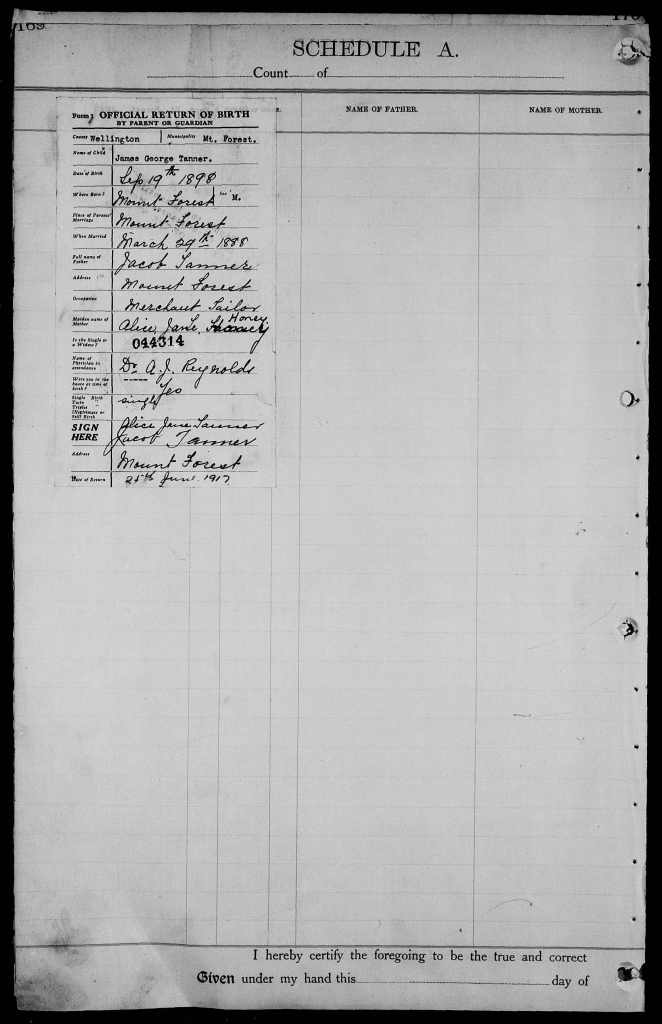 169
170
SCHEDULE A.
Count of
NAME OF FATHER.
NAME OF MOTHER.
Form 1 OFFICIAL RETURN OF BIRTH
BY PARENT OR GUARDIAN
County Wellington Municipality Mt. Forest.
Name of Child James George Tanner.
Date of Birth Sep 19th 1898
Where Born? Mount Forest Sex M.
Place of Parents' Marriage Mount Forest
When Married March 29th 1888
Full name of Father Jacob Tanner
Address Mount Forest
Occupation Merchant Tailor
Maiden name of Mother Alice Jane Honey
Is the Single or a Widow?
044314
Name of Physician in attendance Dr. A. J. Reynolds
Were you in the house at time of birth? Yes
Single Birth Twin " Triplet " Illegitimate or Still Birth single
SIGN HERE Alice Jane Tanner
Jacob Tanner
Address Mount Forest
Date of Return 25th June 1917
I hereby certify the foregoing to be the true and correct
Given under my hand this day of